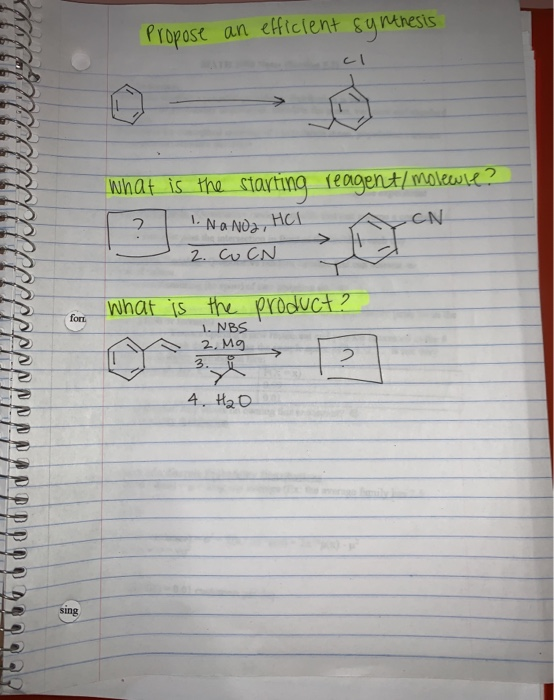 Propose an efficient synthesis
Cl
What is the starting reagent/molecule?
?
1. NaNO2, HCl
2. CuCN
CN
What is the product?
fort
1. NBS
2. Mg
3.
O
?
4. H2O
sing